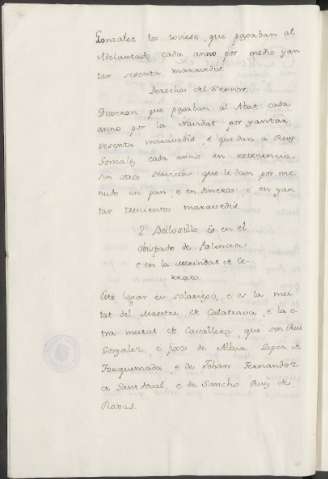 Gonzalez los solares, que pagaban al
Adelantado cada anno por medio yan
tar sesenta maravedis.
Derechos del Sennor.
Dixeron que pagaban al Abat cada
anno por la Navidat por yantar,
sesenta maravedis, e que dan a Ruy
Gonzalez cada anno en
que le dan por me
nudo en pan, e en dineros, e en yan
tar trecientos maravedis.
Bellosillo es en el
obispado de Palencia
e en la merindat de Ce
rrato.
Este logar es solariego, e es la mei
tat del Maestre de Calatrava, e la o
tra meitat de Cavalleros, que son Rui
Gonzalez, e fijos de Alvar Lopez de
Torquemada, e de Johan Fernandez
de Sant, e de Sancho Ruiz de
Rojas.